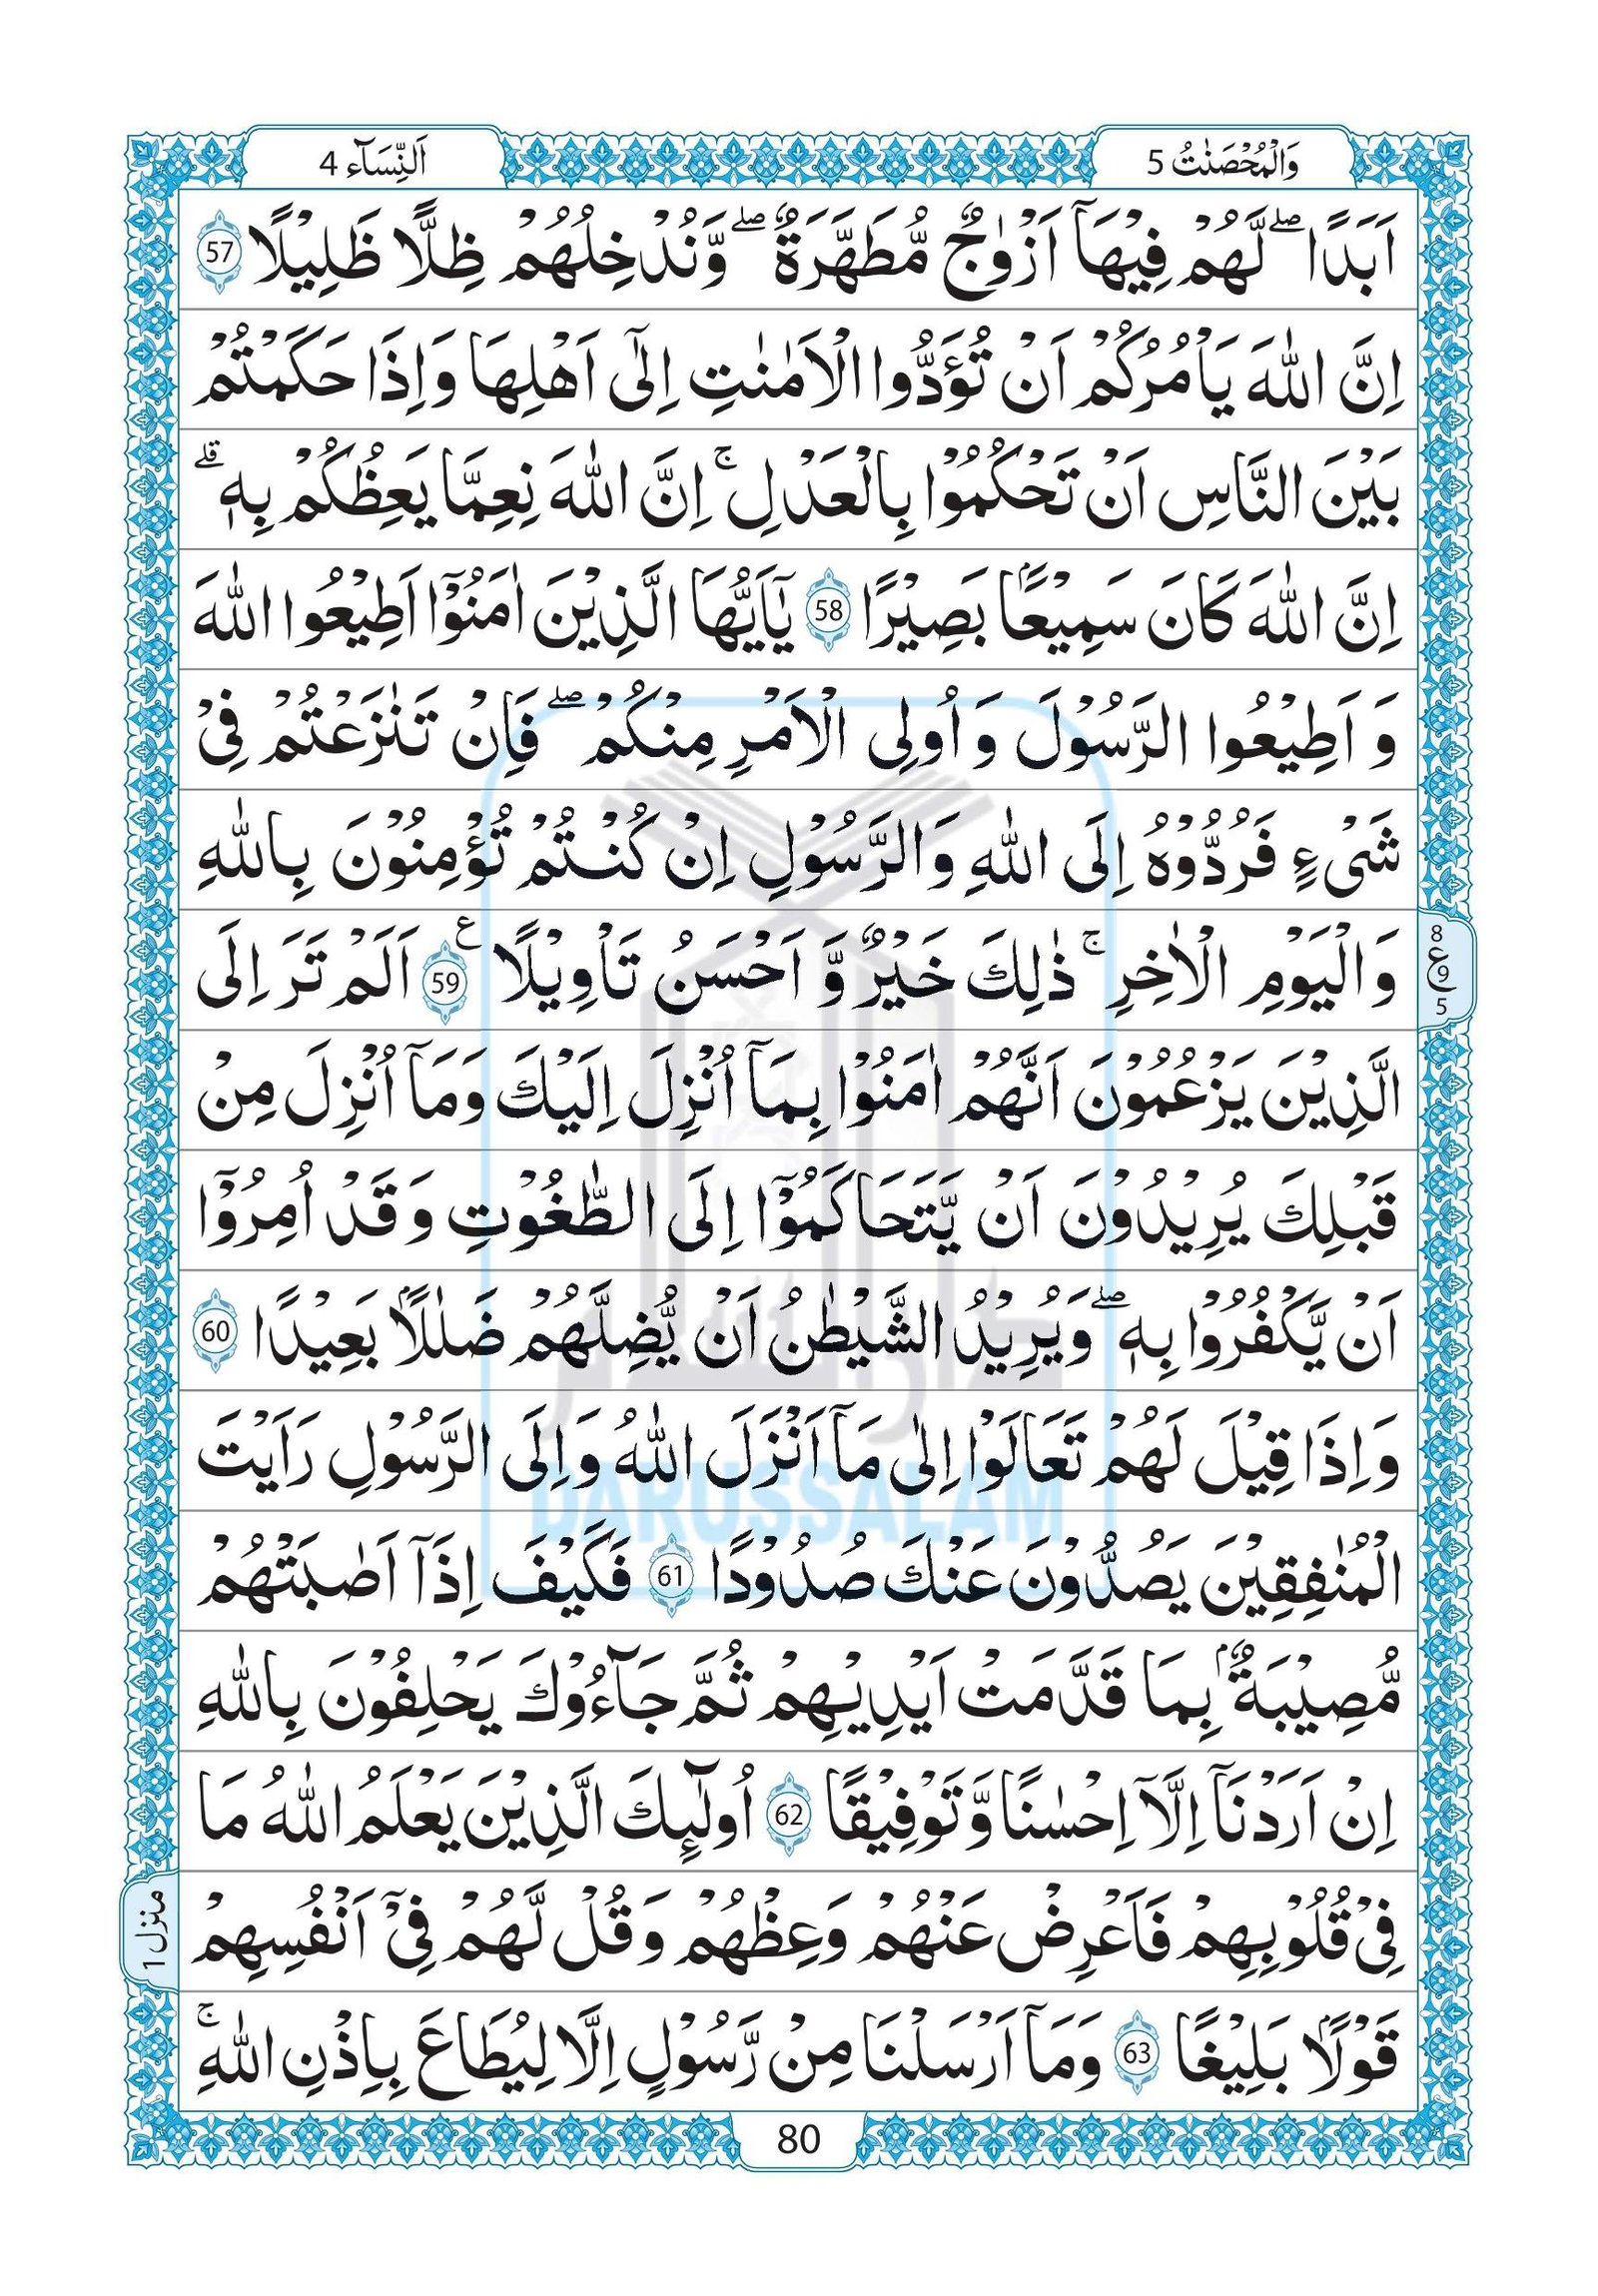 وَالْمُحْصَنٰتُ 5
اَلنِّسَآء 4
اَبَدًا ۖ لَّهُمْ فِيْهَآ اَزْوٰجٌ مُّطَهَّرَةٌ ۖ وَّنُدْخِلُهُمْ ظِلًّا ظَلِيْلًا 57
اِنَّ اللّٰهَ يَاْمُرُكُمْ اَنْ تُؤَدُّوا الْاَمٰنٰتِ اِلٰٓى اَهْلِهَا وَاِذَا حَكَمْتُمْ
بَيْنَ النَّاسِ اَنْ تَحْكُمُوْا بِالْعَدْلِ ۚ اِنَّ اللّٰهَ نِعِمَّا يَعِظُكُمْ بِهٖ ۗ
اِنَّ اللّٰهَ كَانَ سَمِيْعًۢا بَصِيْرًا 58 يٰٓاَيُّهَا الَّذِيْنَ اٰمَنُوْٓا اَطِيْعُوا اللّٰهَ
وَ اَطِيْعُوا الرَّسُوْلَ وَ اُولِى الْاَمْرِ مِنْكُمْ ۖ فَاِنْ تَنٰزَعْتُمْ فِىْ
شَىْءٍ فَرُدُّوْهُ اِلَى اللّٰهِ وَالرَّسُوْلِ اِنْ كُنْتُمْ تُؤْمِنُوْنَ بِاللّٰهِ
وَالْيَوْمِ الْاٰخِرِ ۚ ذٰلِكَ خَيْرٌ وَّ اَحْسَنُ تَاْوِيْلًا 59 ع اَلَمْ تَرَ اِلَى
8
ع 9
5
الَّذِيْنَ يَزْعُمُوْنَ اَنَّهُمْ اٰمَنُوْا بِمَآ اُنْزِلَ اِلَيْكَ وَمَآ اُنْزِلَ مِنْ
قَبْلِكَ يُرِيْدُوْنَ اَنْ يَّتَحَاكَمُوْٓا اِلَى الطّٰغُوْتِ وَقَدْ اُمِرُوْٓا
اَنْ يَّكْفُرُوْا بِهٖ ۖ وَيُرِيْدُ الشَّيْطٰنُ اَنْ يُّضِلَّهُمْ ضَلٰلًۢا بَعِيْدًا 60
وَاِذَا قِيْلَ لَهُمْ تَعَالَوْا اِلٰى مَآ اَنْزَلَ اللّٰهُ وَاِلَى الرَّسُوْلِ رَاَيْتَ
الْمُنٰفِقِيْنَ يَصُدُّوْنَ عَنْكَ صُدُوْدًا 61 فَكَيْفَ اِذَآ اَصٰبَتْهُمْ
مُّصِيْبَةٌۢ بِمَا قَدَّمَتْ اَيْدِيْهِمْ ثُمَّ جَآءُوْكَ يَحْلِفُوْنَ بِاللّٰهِ
اِنْ اَرَدْنَآ اِلَّآ اِحْسٰنًا وَّتَوْفِيْقًا 62 اُولٰٓئِكَ الَّذِيْنَ يَعْلَمُ اللّٰهُ مَا
فِىْ قُلُوْبِهِمْ فَاَعْرِضْ عَنْهُمْ وَعِظْهُمْ وَقُلْ لَّهُمْ فِىْٓ اَنْفُسِهِمْ
منزل 1
قَوْلًۢا بَلِيْغًا 63 وَمَآ اَرْسَلْنَا مِنْ رَّسُوْلٍ اِلَّا لِيُطَاعَ بِاِذْنِ اللّٰهِ ۚ
80
DARUSSALAM